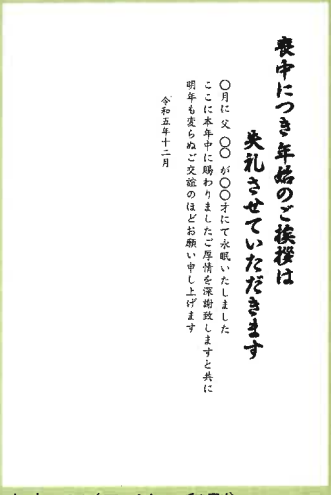 喪中につき年始のご挨拶は
失礼させていただきます
〇月に 父 〇〇 が〇〇才にて永眠いたしました
ここに本年中に賜わりましたご厚情を深謝致しますと共に
明年も変らぬご交誼のほどお願い申し上げます
令和五年十二月